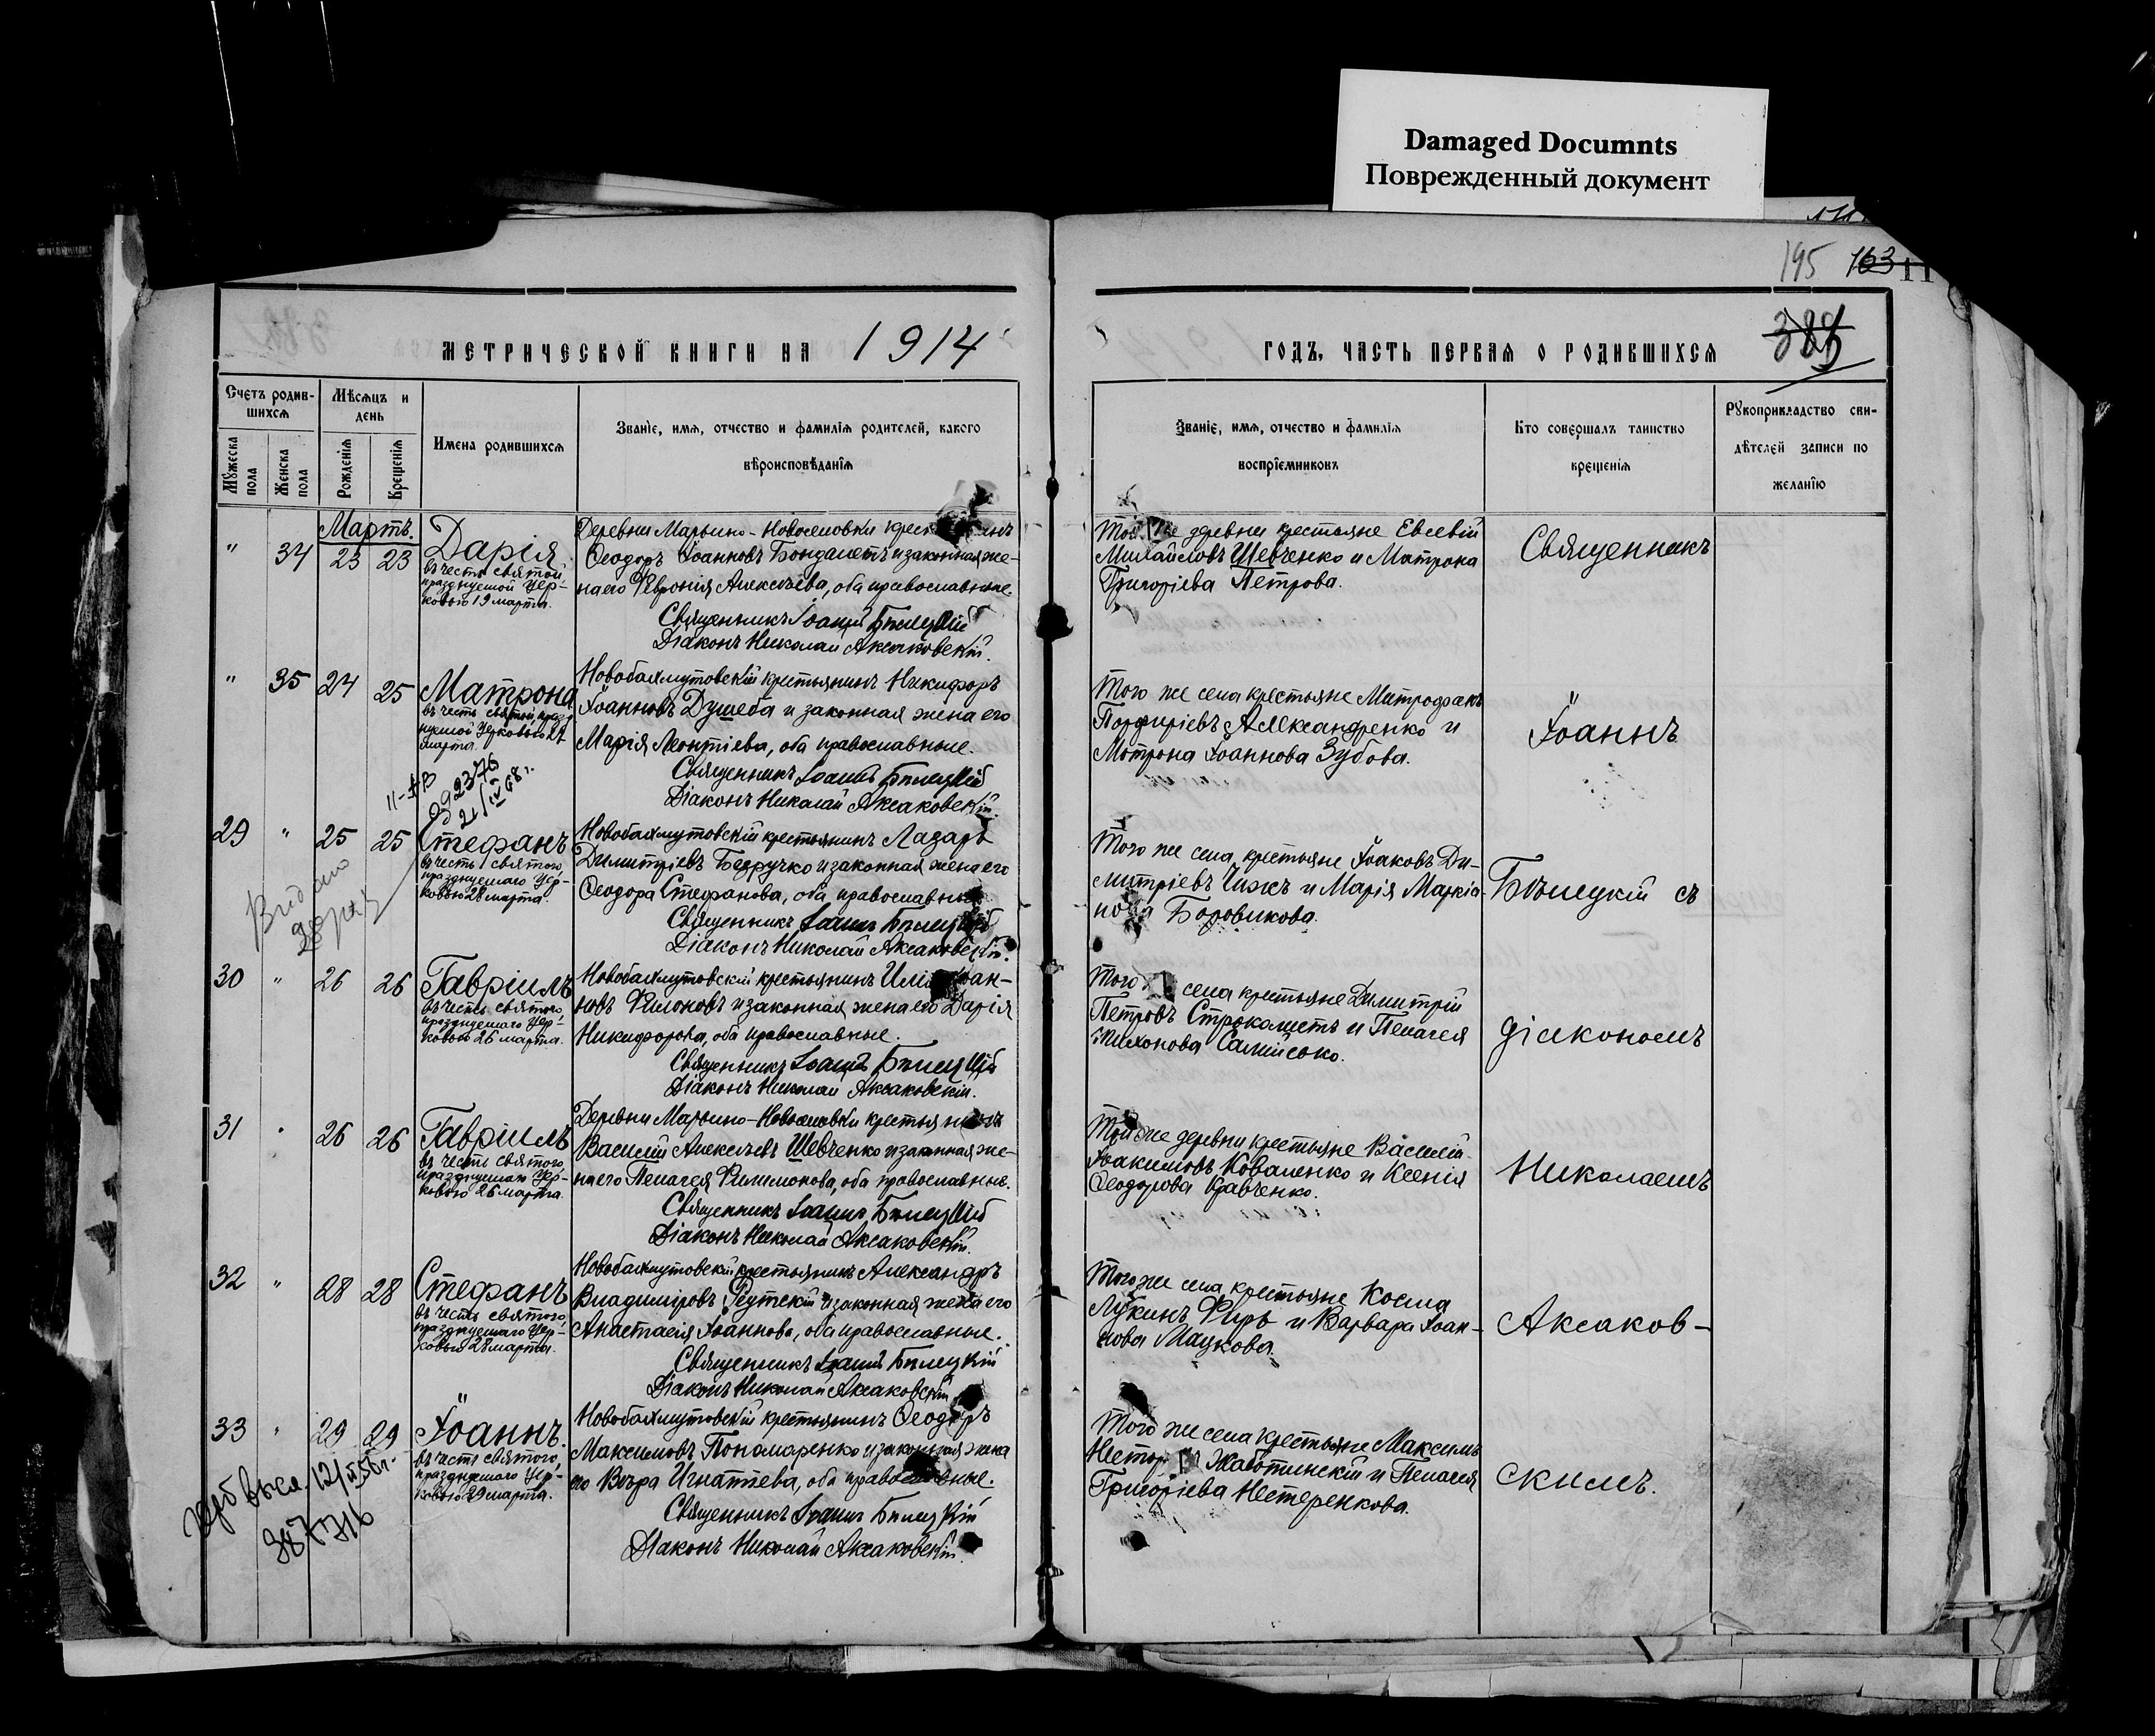 Damaged Documnts
Поврежденный документ
195 163 11
МЕТРИЧЕСКОЙ КНИГИ НА 1914
Счетъ родив-
шихся
Мѣсяцъ и
день
Мужеска
пола
Женска
пола
Рожденія
Крещенія
Имена родившихся
Званіе, имя, отчество и фамилія родителей, какого
вѣроисповѣданія
Мартъ.
" 34 23 23
Дарія
въ честь святой,
празднуемой Цер-
ковью 19 марта.
Деревни Марьино-Новоселовки крест инъ
Ѳеодоръ Іоанновъ Бондаметъ и законная же-
на его Февронія Алексѣева, оба православные.
Священникъ Іоаннъ Бѣлецкій
Діаконъ Николай Аксаковскій.
" 35 24 25
Матрона
въ честь святой, празд-
нуемой Церковью 27
марта.
Новобахмутовскій крестьянинъ Никифоръ
Іоанновъ Душеба и законная жена его
Марія Леонтіева, оба православные.
Священникъ Іоаннъ Бѣлецкій
Діаконъ Николай Аксаковскій
092376
21/IV 68 г.
29 " 25 25
Стефанъ
въ честь святого,
празднуемаго Цер-
ковью 28 марта.
Новобахмутовскій крестьянинъ Лазарь
Димитріевъ Бедручко и законная жена его
Ѳеодора Стефанова, оба православные
Священникъ Іоаннъ Бѣлецкій
Діаконъ Николай Аксаковскій.
30 " 26 26
Гавріилъ
въ честь святого,
празднуемаго Цер-
ковью 26 марта.
Новобахмутовскій крестьянинъ Илія Іоан-
новъ Филоновъ и законная жена его Дарія
Никифорова, оба православные.
Священникъ Іоаннъ Бѣлецкій
Діаконъ Николай Аксаковскій.
31 " 26 26
Гавріилъ
въ честь святого,
празднуемаго Цер-
ковью 26 марта.
Деревни Марьино-Новоселовки крестьянинъ
Василій Алексѣевъ Шевченко и законная же-
на его Пелагея Филимонова, оба православные.
Священникъ Іоаннъ Бѣлецкій
Діаконъ Николай Аксаковскій.
32 " 28 28
Стефанъ
въ честь святого,
празднуемаго Цер-
ковью 28 марта.
Новобахмутовскій крестьянинъ Александръ
Владиміровъ Реутскій и законная жена его
Анастасія Іоаннова, оба православные.
Священникъ Іоаннъ Бѣлецкій
Діаконъ Николай Аксаковскій
33 " 29 29
Іоаннъ.
въ честь святого,
празднуемаго Цер-
ковью 29 марта.
Новобахмутовскій крестьянинъ Ѳеодоръ
Максимовъ Пономаренко и законная жена
его Вѣра Игнатіева, оба православные.
Священникъ Іоаннъ Бѣлецкій
Діаконъ Николай Аксаковскій.
ГОДЪ, ЧАСТЬ ПЕРВАЯ О РОДИВШИХСЯ
Званіе, имя, отчество и фамилія
воспріемниковъ
Кто совершалъ таинство
крещенія
Рукоприкладство сви-
дѣтелей записи по
желанію
Той же деревни крестьяне Евсевій
Михайловъ Шевченко и Матрона
Григоріева Петрова.
Того же села крестьяне Митрофанъ
Порфиріевъ Александренко и
Матрона Іоаннова Зубова.
Того же села, крестьяне Іоаковъ Ди-
митріевъ Чижъ и Марія Маркіа-
нова Боровикова.
Того же села крестьяне Димитрій
Петровъ Строкаметъ и Пелагея
Тихонова
Той же деревни крестьяне Василій
Іоакимовъ Коваленко и Ксенія
Ѳеодорова Кравченко.
Того же села крестьяне Косма
Лукинъ Фирь и Варвара Іоан-
нова Мацкова.
Того же села крестьяне Максимъ
Нестор Жаботинскій и Пелагея
Григоріева Нестеренкова.
Священникъ
Іоаннъ
Бѣлецкій съ
діакономъ
Николаемъ
Аксаков-
скимъ.